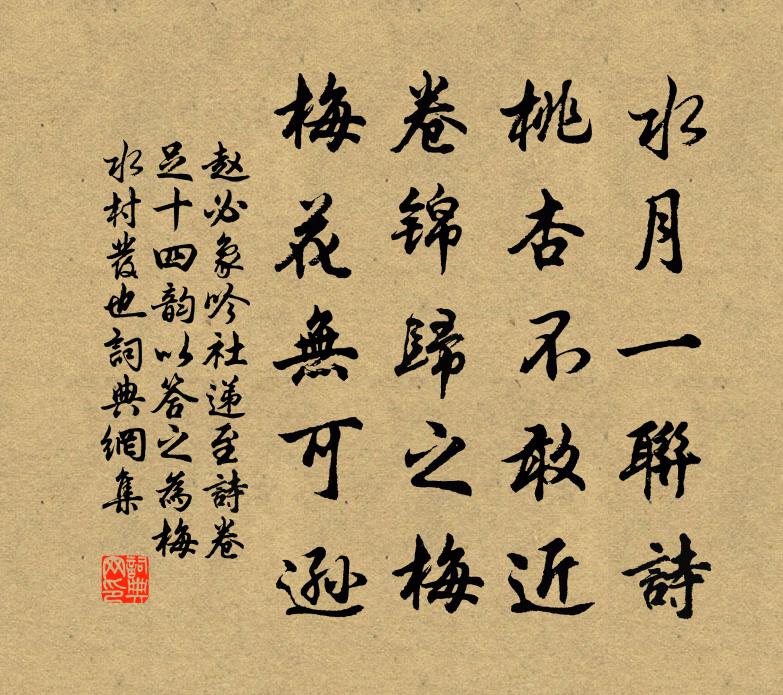 水月一聯詩
桃杏不敢近
卷錦歸之梅
梅花無可遜
赵必象吟社递至詩卷
足十四韵以答之為梅
水村發也詞典網集
詞典網印